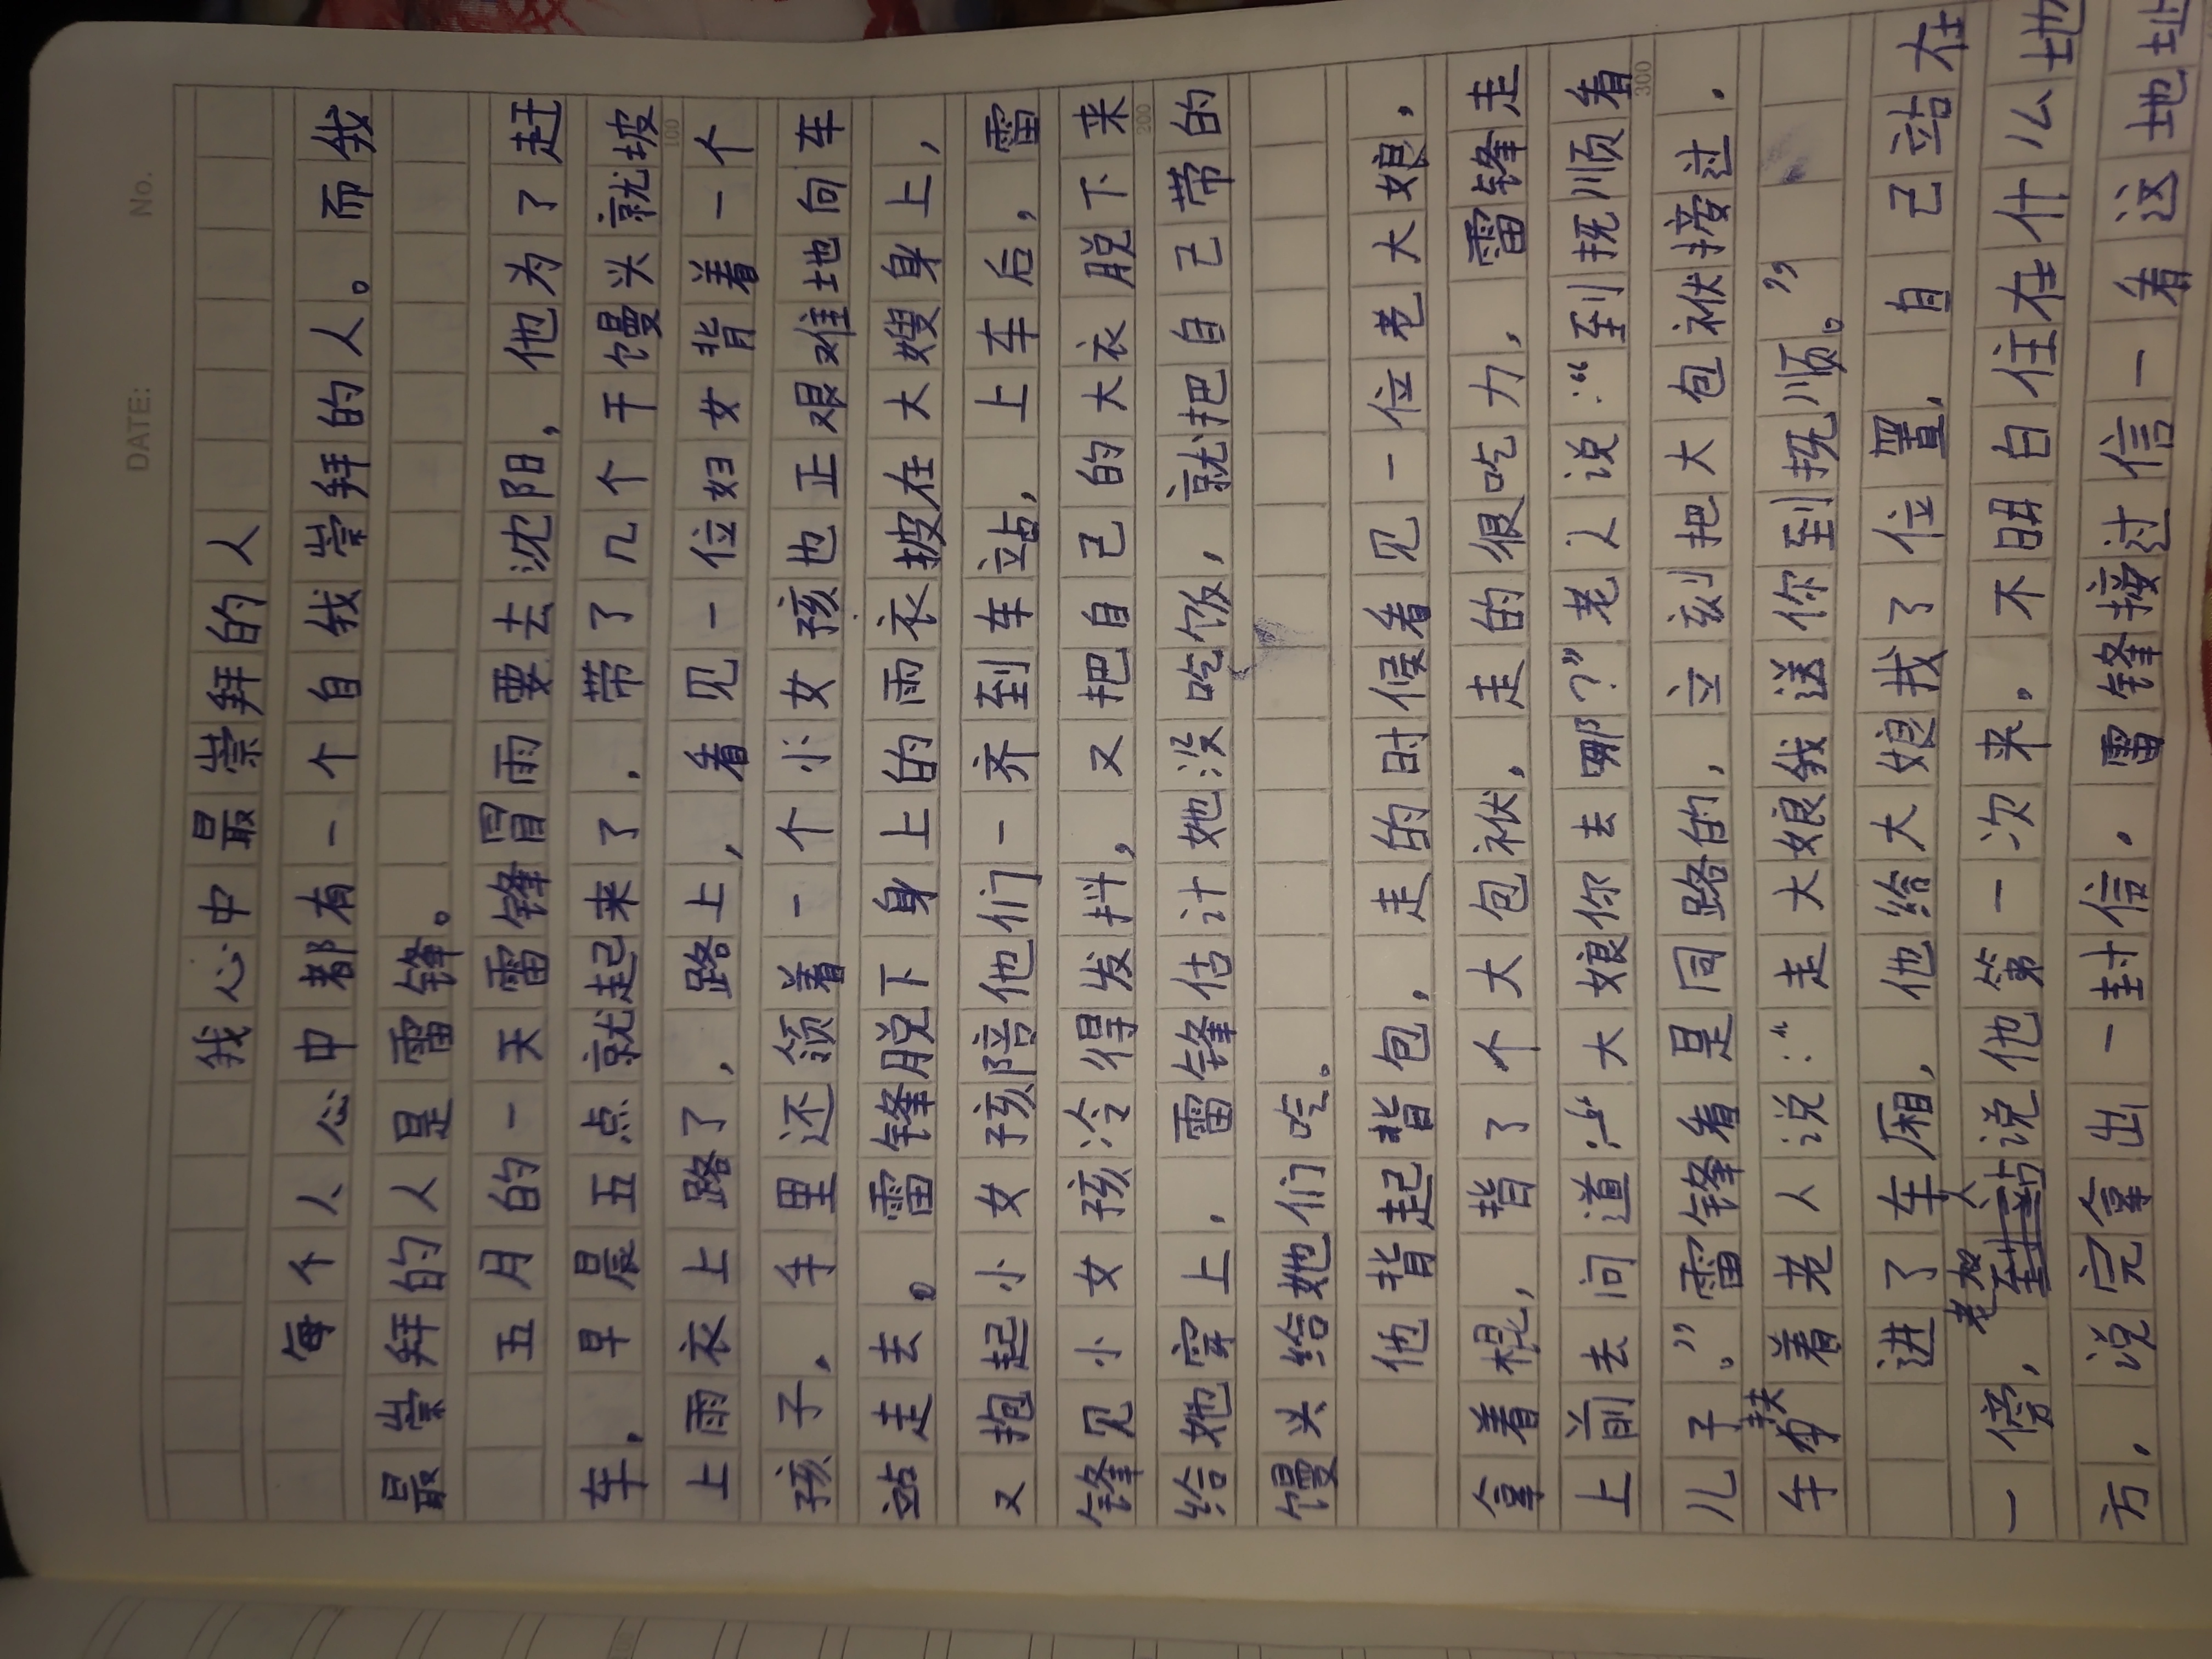 DATE: No.
我心中最崇拜的人
每个人心中都有一个自我崇拜的人。而我
最崇拜的人是雷锋。
五月的一天雷锋冒雨要去沈阳，他为了赶
车，早晨五点就起来了，带了几个干馒头就坡
100
上雨衣上路了，路上，看见一位妇女背着一个
孩子，手里还领着一个小女孩也正艰难地向车
站走去。雷锋脱下身上的雨衣披在大嫂身上，
又抱起小女孩陪他们一齐到车站，上车后，雷
锋见小女孩冷得发抖，又把自己的大衣脱下来
200
给她穿上，雷锋估计她没吃饭，就把自己带的
馒头给她们吃。
他背起背包，走的时候看见一位老大娘，
拿着棍，背了个大包袱，走的很吃力，雷锋走
上前去问道：“大娘你去哪？”老人说：“到抚顺看
300
儿子。”雷锋看是同路的，立刻把大包袱接过，
手扶着老人说：“走大娘我送你到抚顺。”
进了车厢，他给大娘找了位置，自己站在
一傍，老人说他第一次来，不明白住在什么地
方，说完拿出一封信，雷锋接过信一看这地址